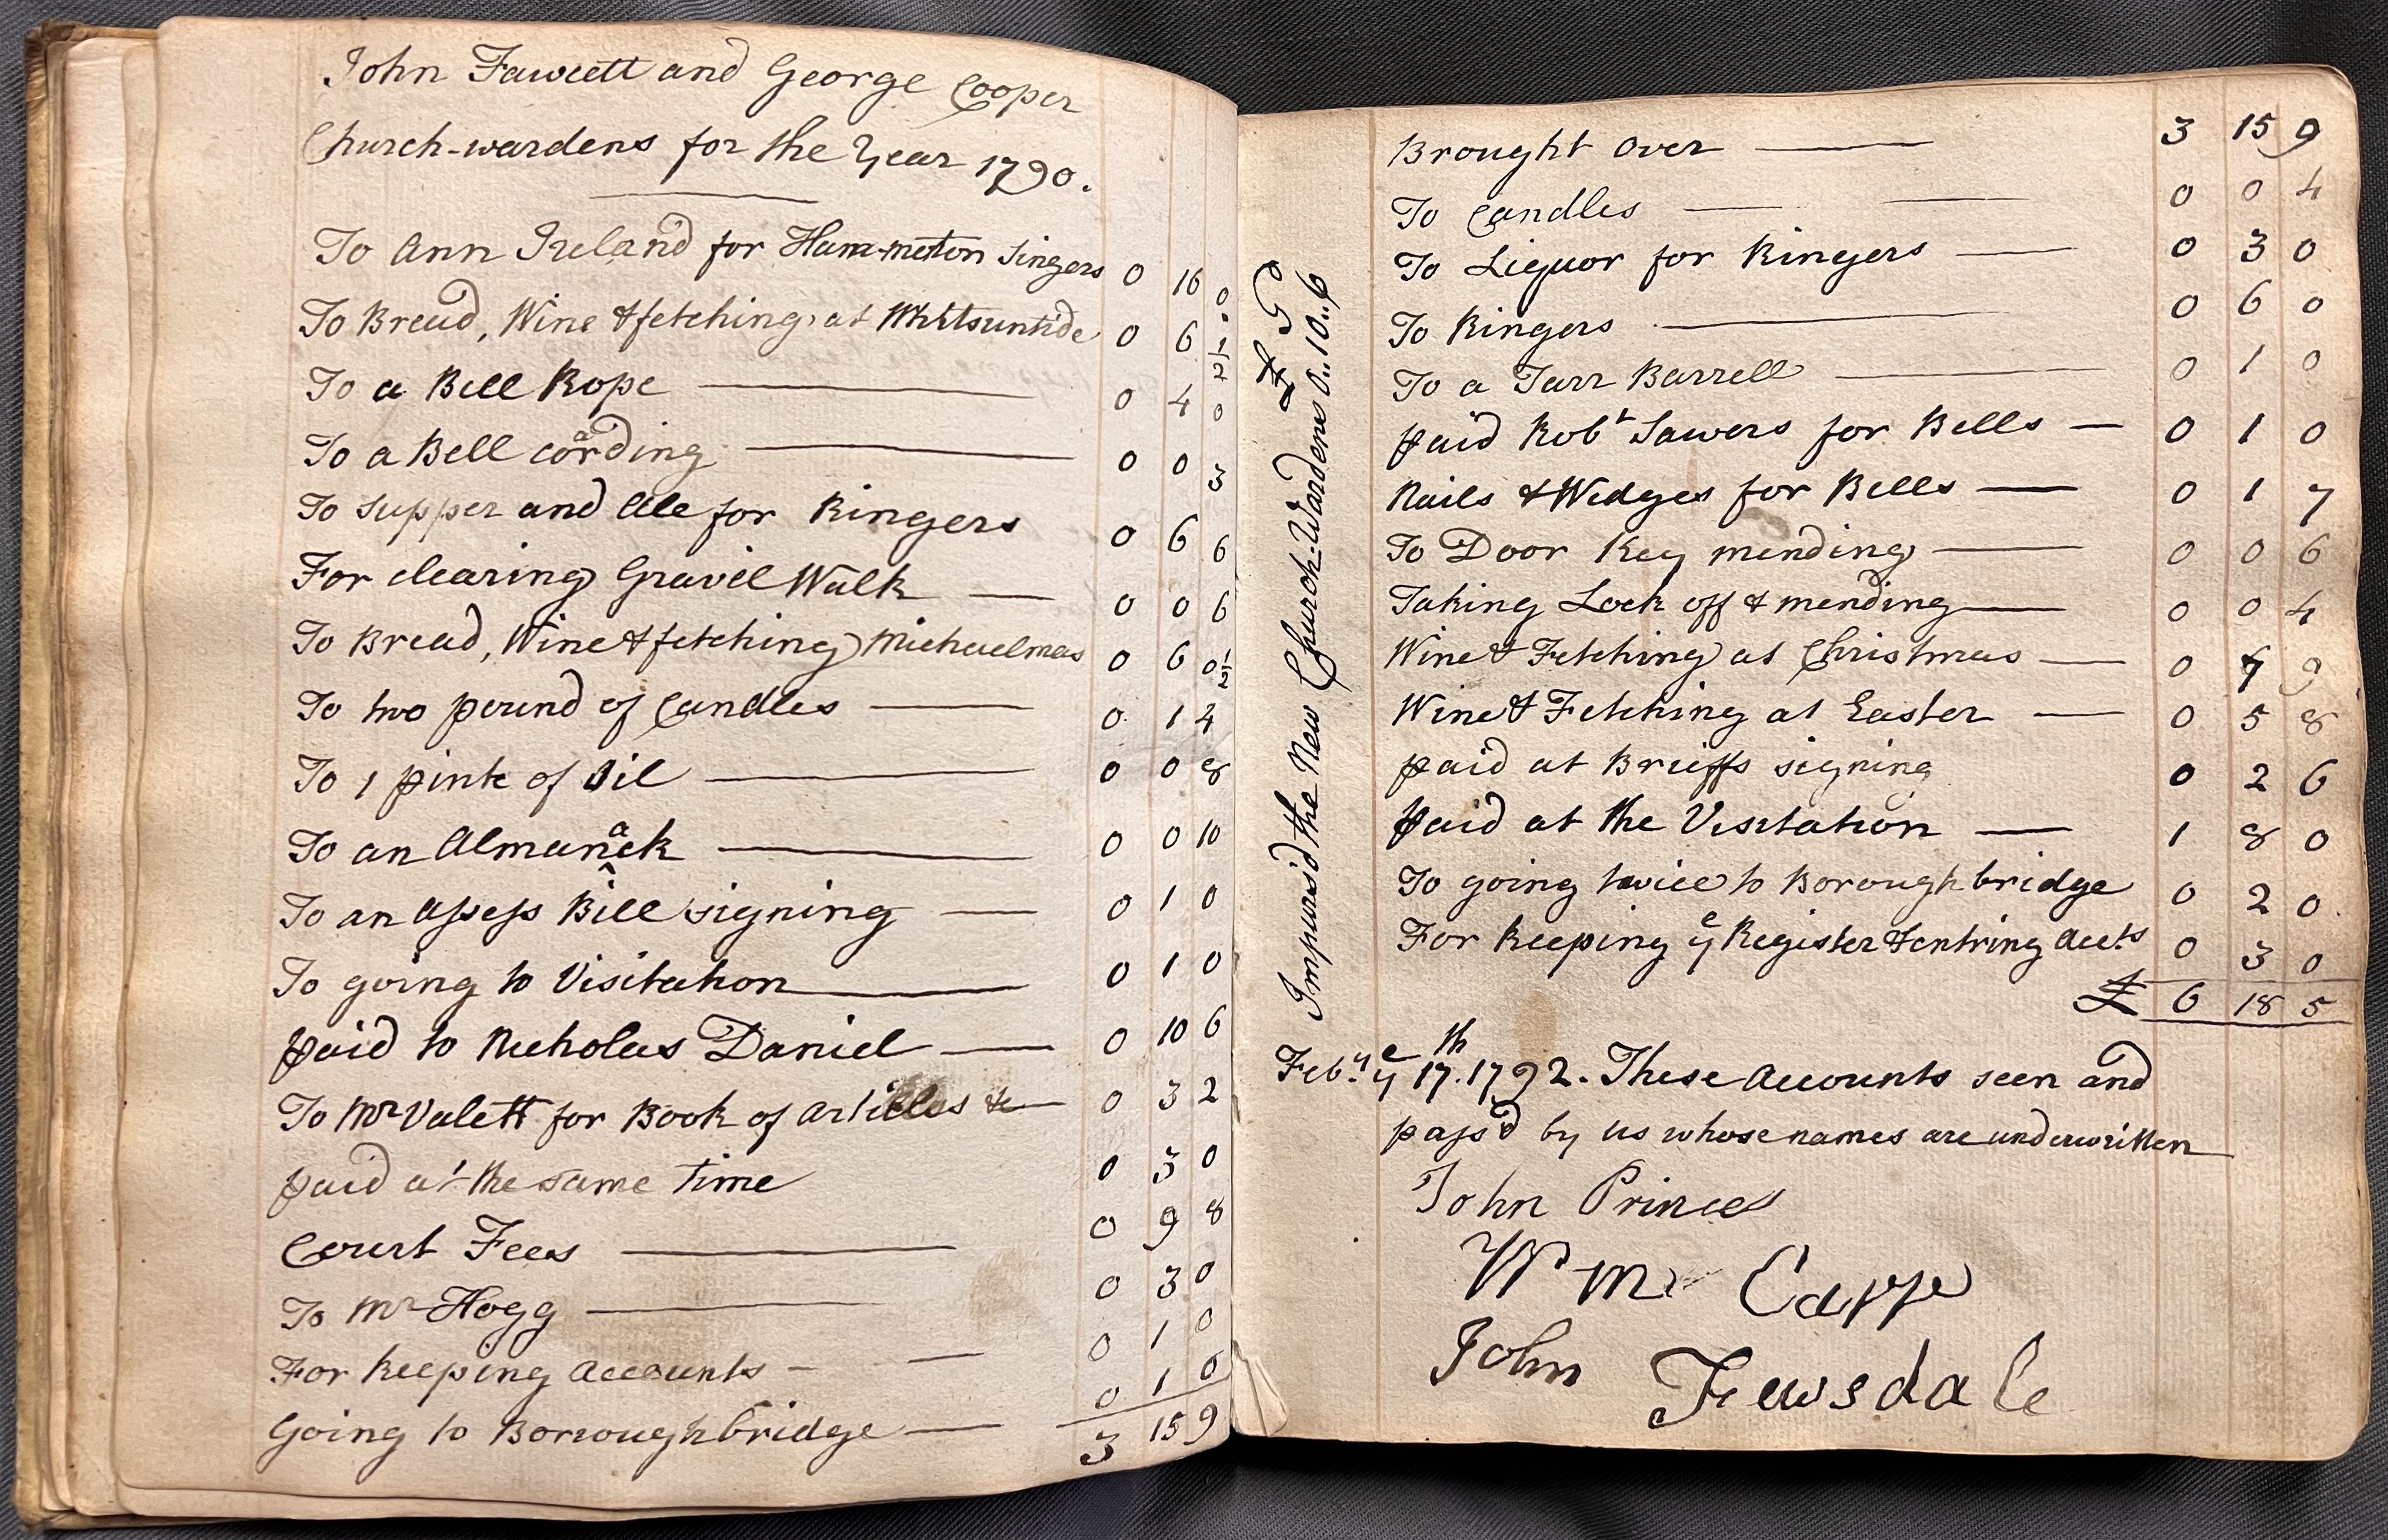 John Fawcett and George Cooper
Church-wardens for the Year 1790.
To Ann Ireland for Ham-meton Singers 0 16 0
To Bread, Wine & fetching at Whitsuntide 0 6 1/2
To a Bell Rope 0 4 0
To a Bell coarding 0 0 3
To Supper and Ale for Ringers 0 6 6
For clearing Gravel Walk 0 0 6
To Bread, Wine & fetching Michaelmas 0 6 0 1/2
To two pound of Candles 0 1 4
To 1 pinte of Oil 0 0 8
To an Almanack 0 0 10
To an Assess Bill signing 0 1 0
To going to Visitation 0 1 0
paid to Nicholas Daniel 0 10 6
To Mr Valett for Book of Articles &c 0 3 2
paid at the same time 0 3 0
Court Fees 0 9 8
To Mr Hogg 0 3 0
For keeping Accounts 0 1 0
Going to Borroughbridge 0 1 0
3 15 9
£ S
Impurs'd the New Church-Wardens 0..10..6
Brought Over 3 15 9
To Candles 0 0 4
To Liquor for Ringers 0 3 0
To Ringers 0 6 0
To a Tarr Barrell 0 1 0
paid Robt Sawers for Bells 0 1 0
Nails & Wedges for Bells 0 1 7
To Door Key mending 0 0 6
Taking Lock off & mending 0 0 4
Wine & Fetching at Christmas 0 7 9
Wine & Fetching at Easter 0 5 8
paid at Brieffs signing 0 2 6
paid at the Visitation 1 8 0
To going twice to Boroughbridge 0 2 0
For keeping ye Register & entring Accts 0 3 0
£ 6 18 5
Feby ye 17th. 1792. These Accounts seen and
pass'd by us whose names are underwritten
John Prince
Wm Capp
John Fewsdale